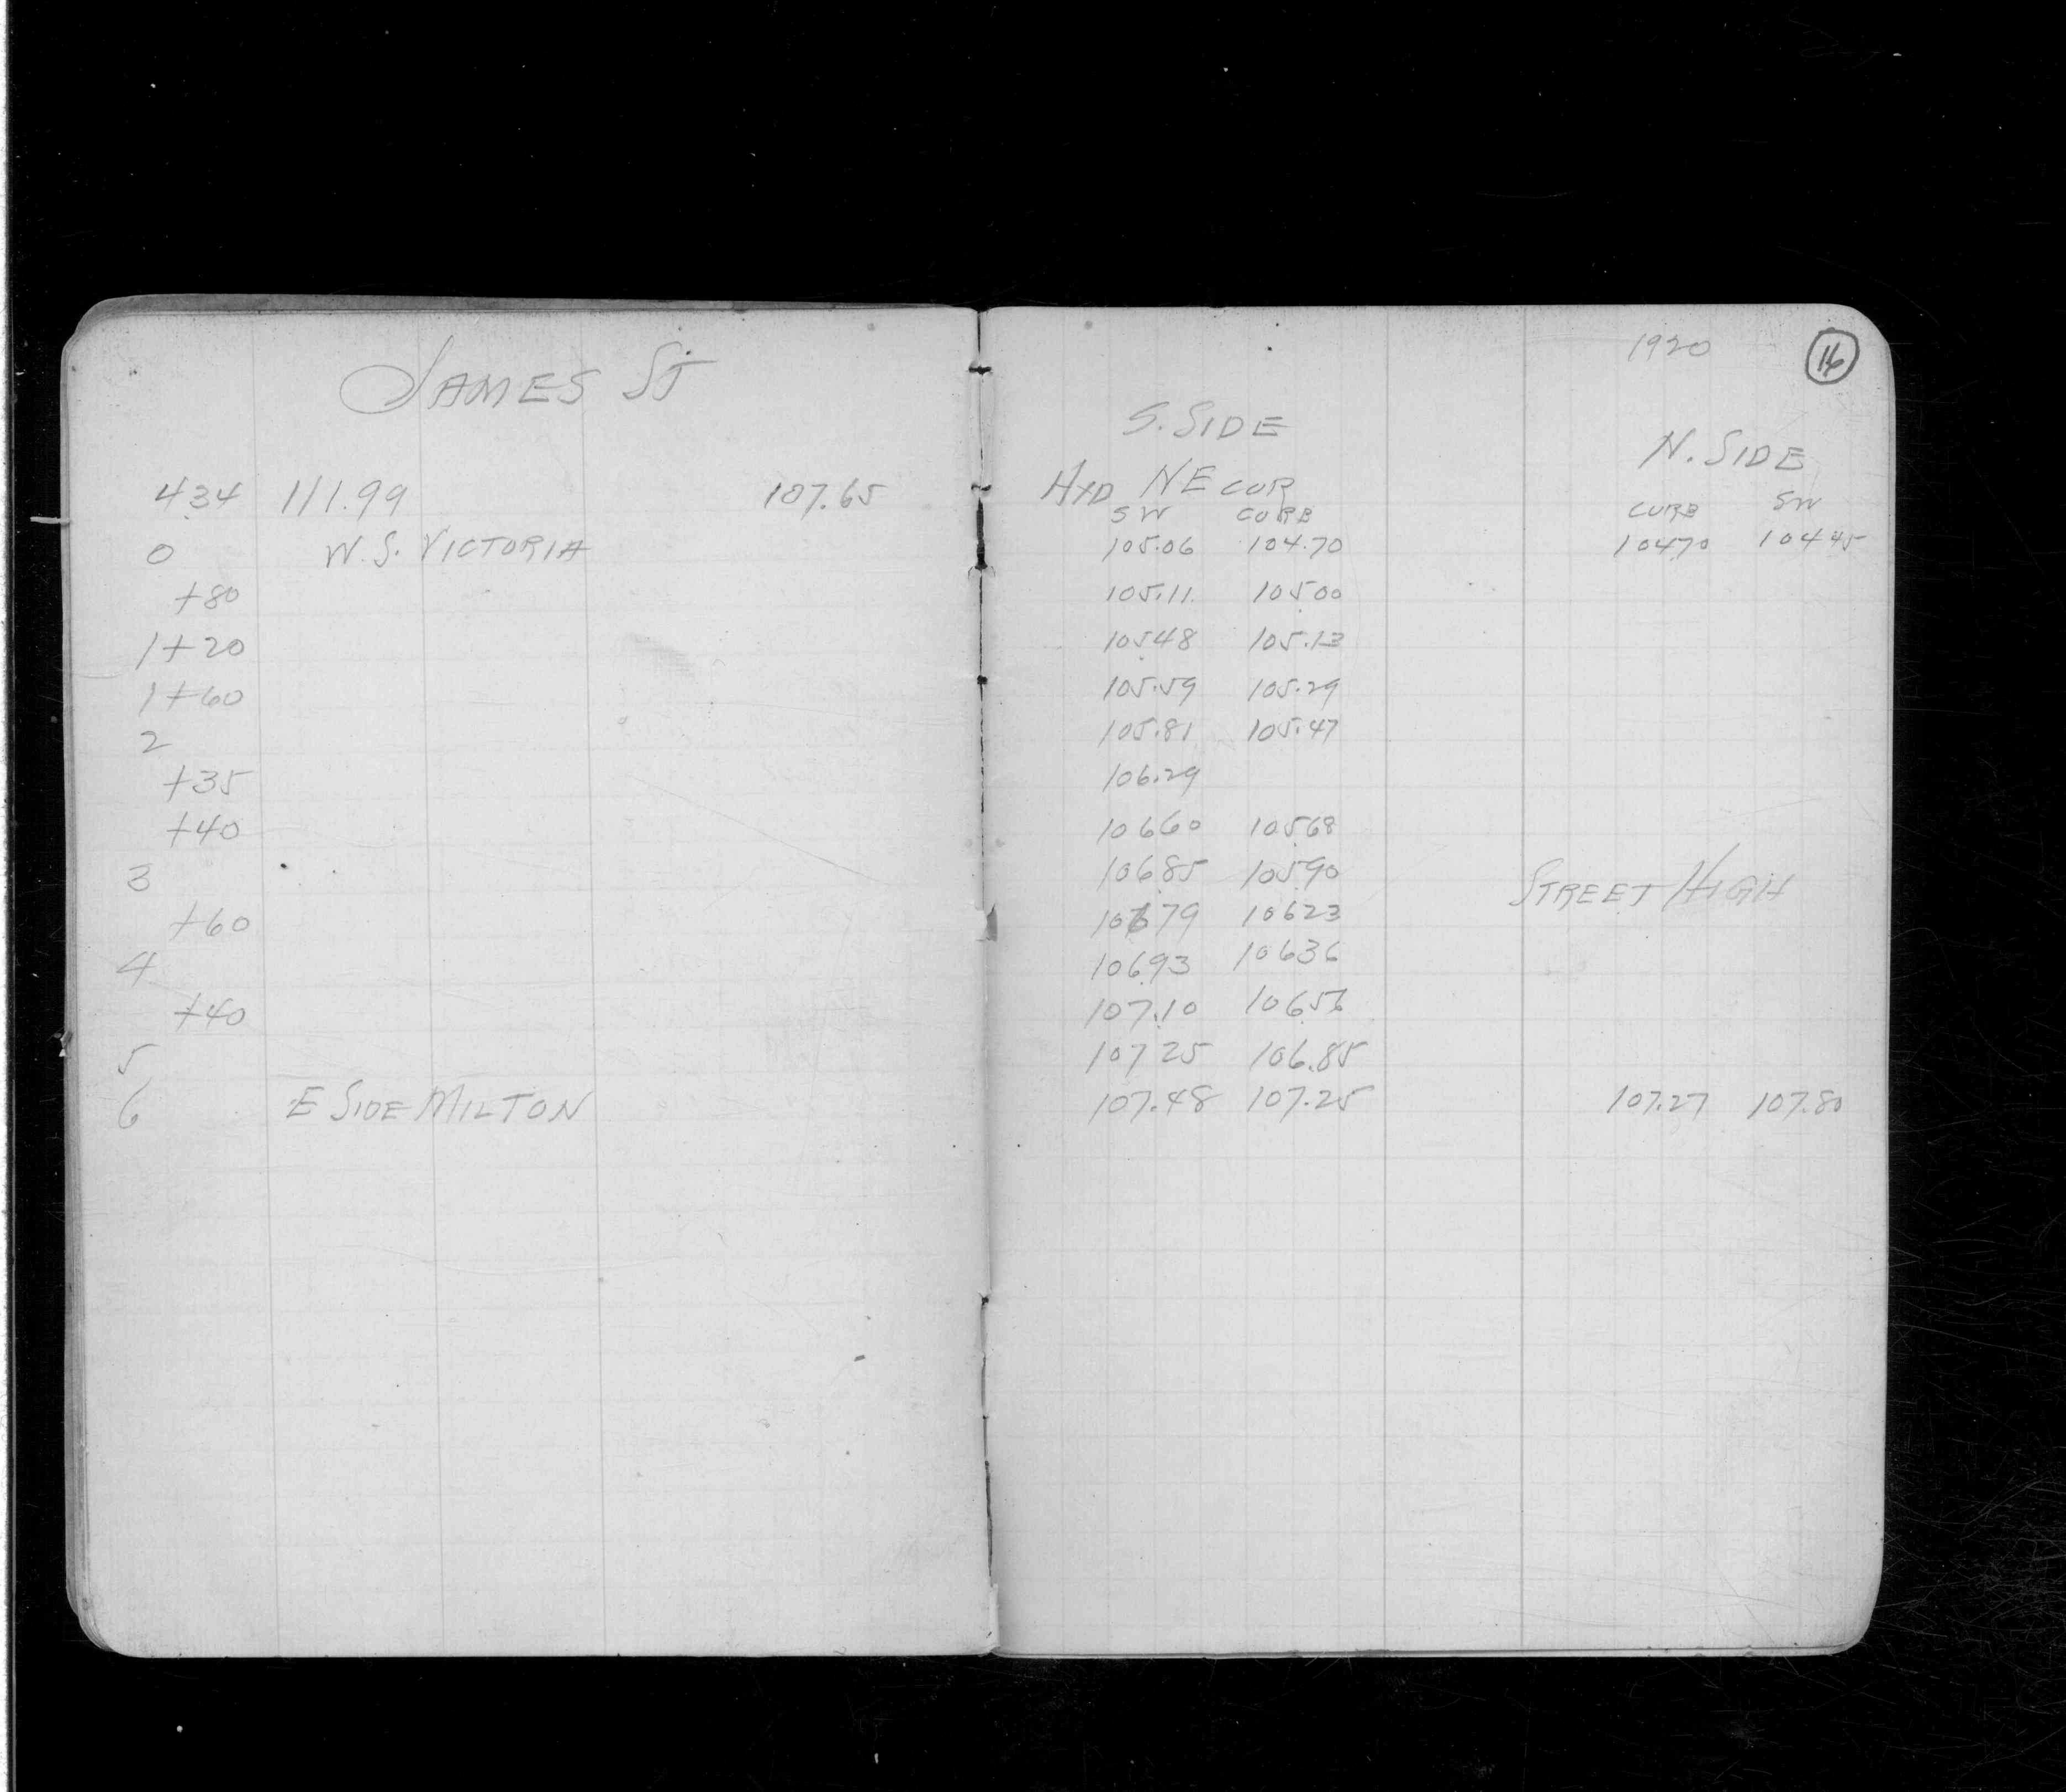 JAMES ST
4.34 111.99 107.65
0 W. S. VICTORIA
+80
1+20
1+60
2
+35
+40
3
+60
4
+40
5
6 E SIDE MILTON
1920 16
S. SIDE N. SIDE
HYD NE COR
SW CURB CURB SW
105.06 104.70 10470 10445
105.11 10500
10548 105.13
105.59 105.29
105.81 105.47
106.29
10660 10568
10685 10590 STREET HIGH
10679 10623
106.93 10636
107.10
10725 106.85
107.48 107.25 107.27 107.80